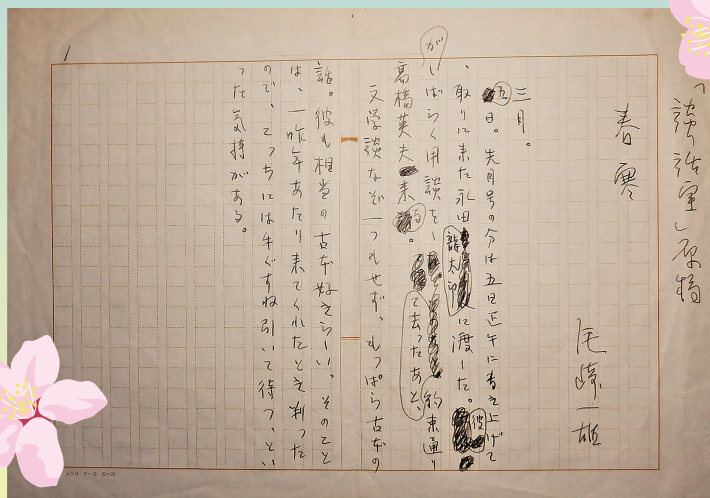 「談話室」原稿
春寒
尾崎一雄
三月。
五日。先月号の分は五日正午に書き上げて
、取りに来た永田龍太郎に渡した。彼
がしばらく用談をして去ったあと、約束通り
高橋英夫来る。
文学談なぞ一つもせず、もっぱら古本の
話。彼も相当の古本好きらしい。そのこと
は、一昨年あたり来てくれたとき判った
ので、こっちには手ぐすね引いて待つ、とい
った気持がある。
1